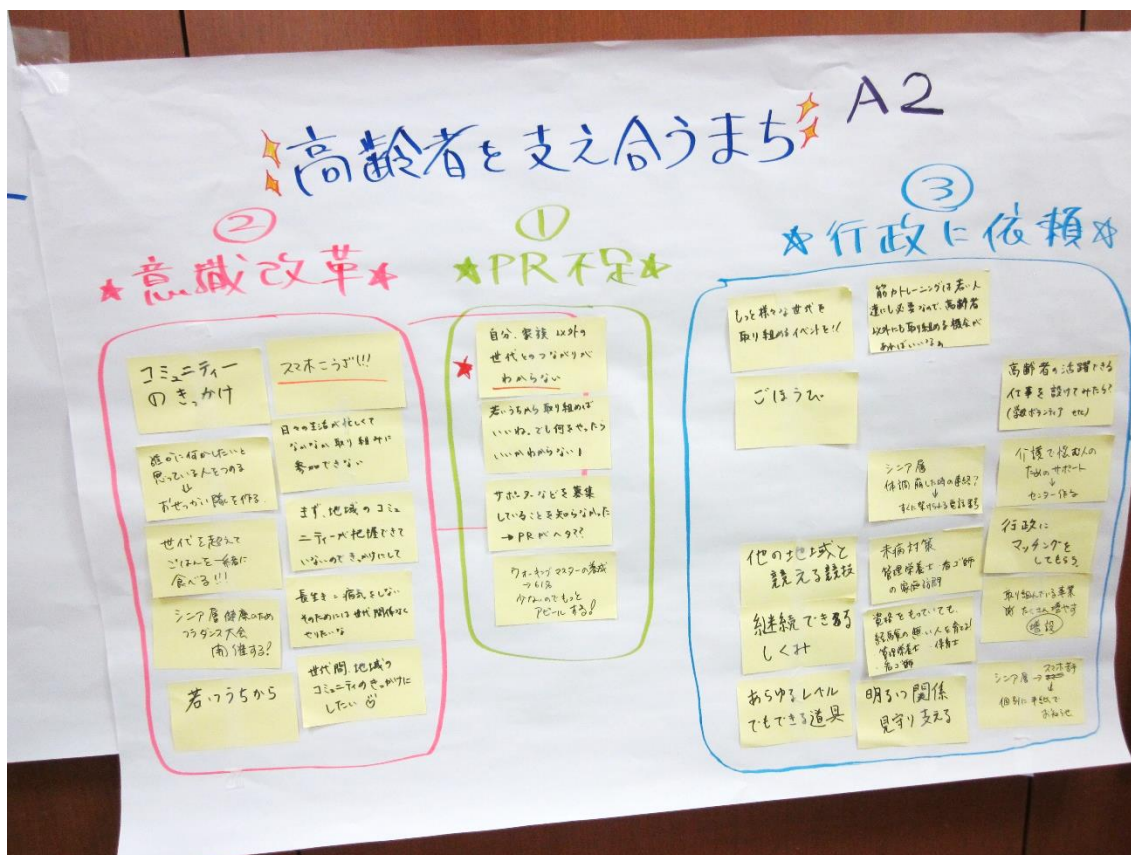 A2
高齢者を支え合うまち
②
★意識改革★
コミュニティー
のきっかけ
スマホこうざ!!!
誰かに何かしたいと
思っている人をつめる
↓
おせっかい隊を作る
日々の生活が忙しくて
なかなか取り組みに
参加できない
世代を超えて
ごはんを一緒に
食べる!!!
まず、地域のコミュ
ニティーが把握できて
いないのできっかけにして
シニア層 健康のため
フラダンス大会
開催する?
長生き=病気をしない
そのためには世代関係なく
やりたいな
若いうちから
世代間、地域の
コミュニティのきっかけに
したい
①
★PR不足★
★
自分、家族以外の
世代とのつながりが
わからない
若いうちから取り組めば
いいね。でも何をやったら
いいかわからない!
サポーターなどを募集
していることを知らなかった
→PRがヘタ??
ウォーキングマスターの養成
→61名
少ないのでもっと
アピールする!
③
★行政に依頼★
もっと様々な世代を
取り組めるイベントを!!
筋力トレーニングは若い人
達にも必要なので、高齢者
以外にも取り組める機会が
あればいいなぁ
ごほうび
高齢者の活躍できる
仕事を設けてみたら?
(ボランティア etc)
シニア層
体調崩した時の連絡?
↓
すぐに挙げられる電話番号
介護で悩む人の
ためのサポート
↓
センター作る
他の地域と
競える競技
未病対策
管理栄養士 看ゴ師
の家庭訪問
行政に
マッチングを
してもらう
継続できる
しくみ
資格をもっていても、
経験の無い人を育てる!
管理栄養士・保育士
・看ゴ師
取り組んでいる事業
たくさん増やす
増設
あらゆるレベル
でもできる道具
明るい関係
見守り支える
シニア層→スマホ
↓
個別に手紙で
お知らせ